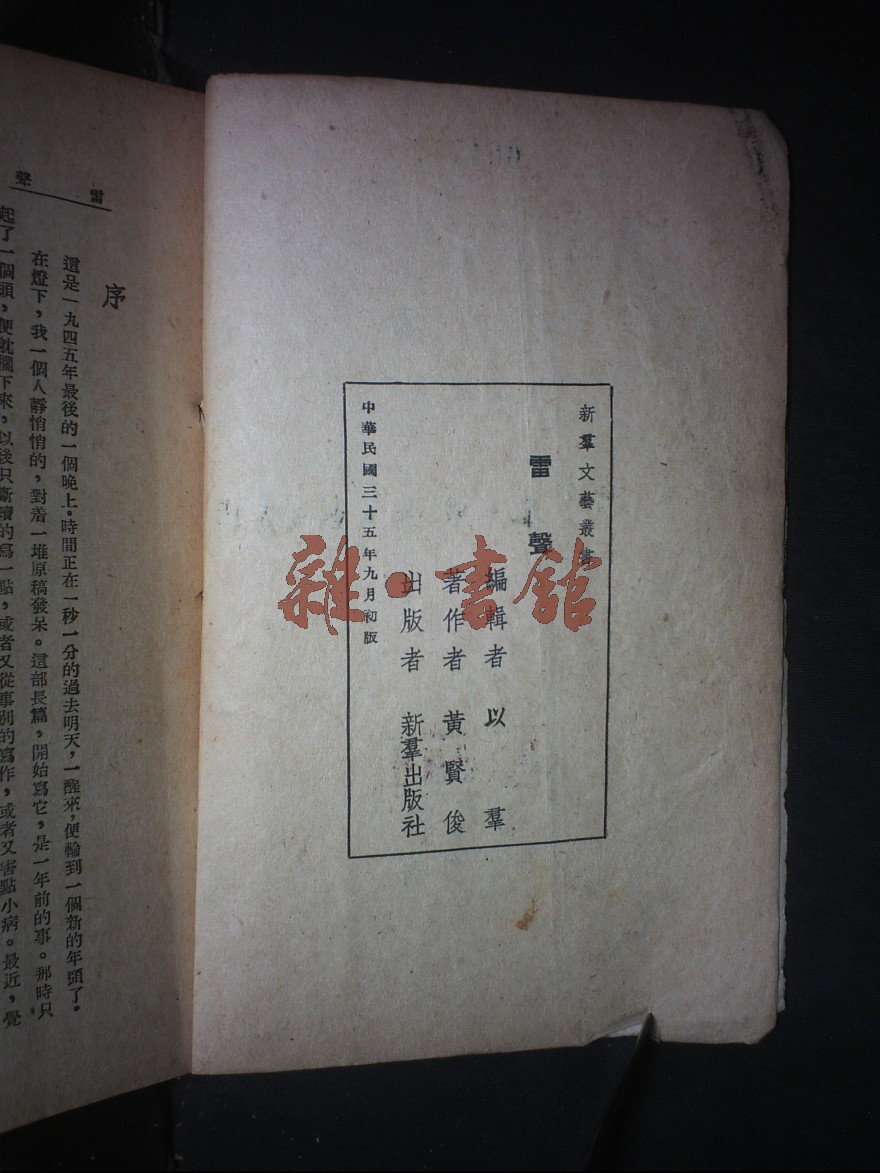 新羣文藝叢書
雷聲
編輯者 以羣
著作者 黃賢俊
出版者 新羣出版社
中華民國三十五年九月初版
雜·書館
雷聲
序
這是一九四五年最後的一個晚上。時間正在一秒一分的過去明天，一醒來，便輪到一個新的年頭了。
在燈下，我一個人靜悄悄的，對着一堆原稿發呆。這部長篇，開始寫它，是一年前的事。那時只
起了一個頭，便就擱下來，以後只斷續的寫一點，或者又從事別的寫作，或者又害點小病。最近，覺